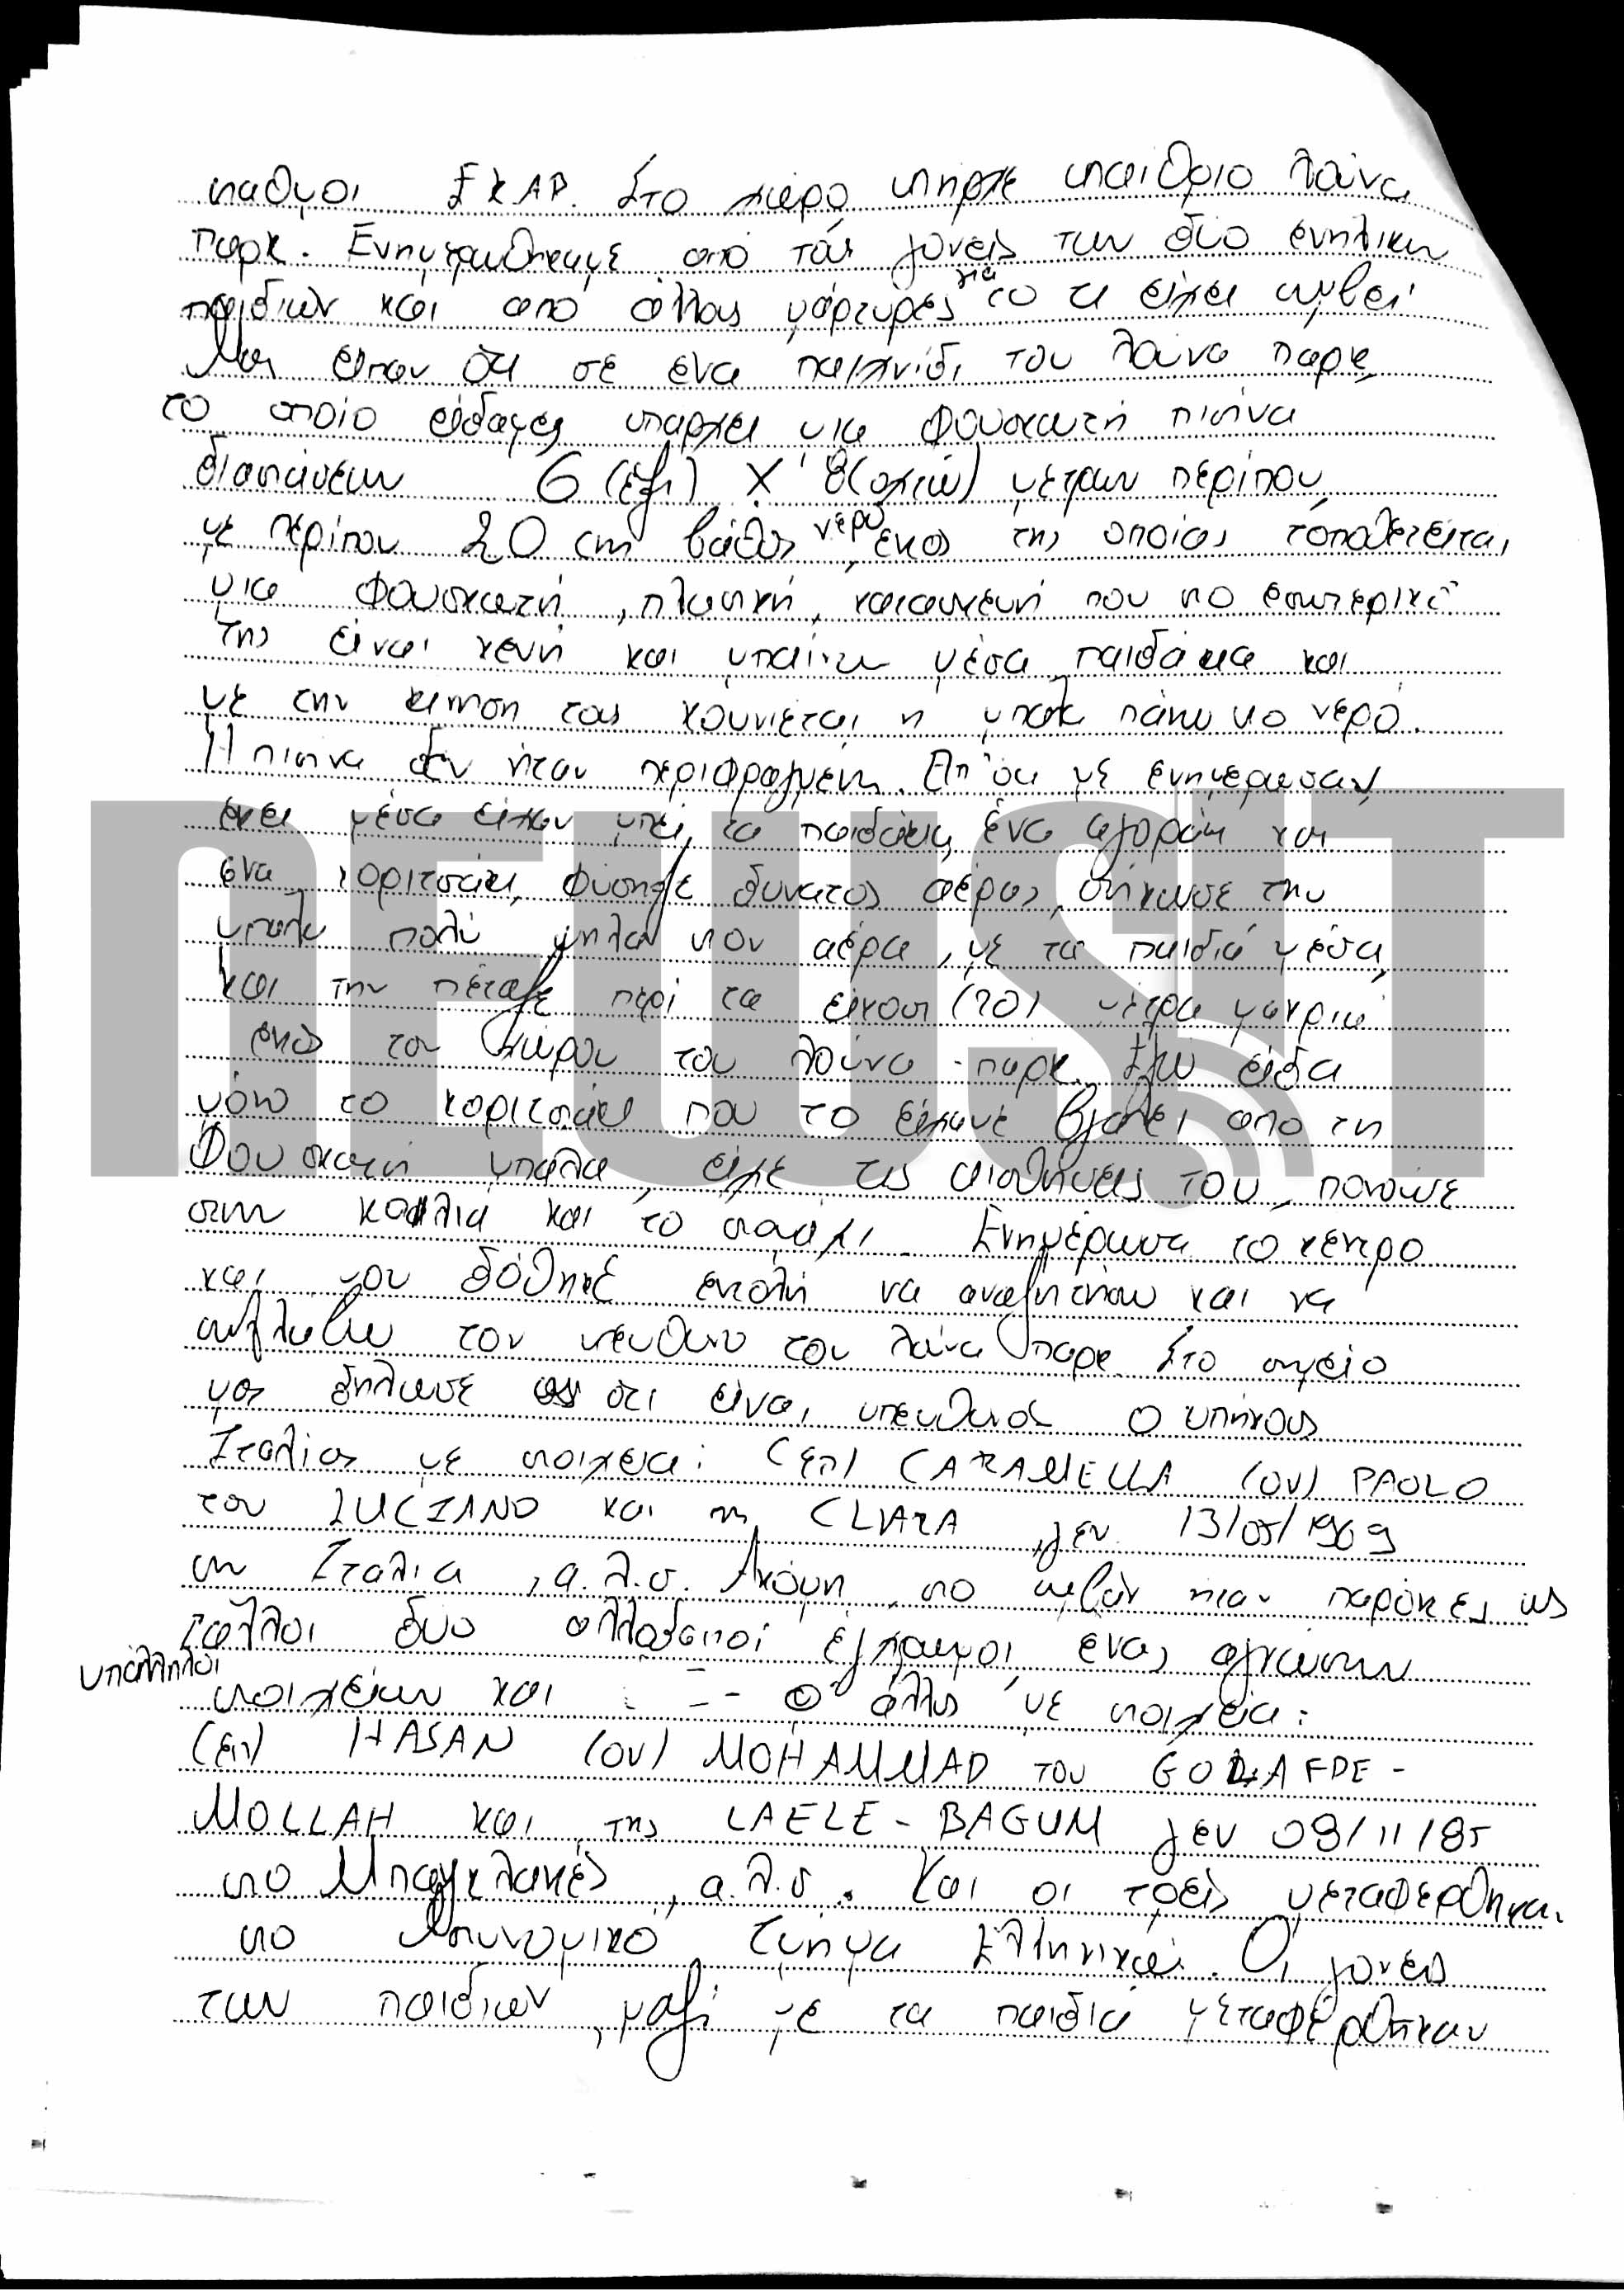 σταθμοί ΣΚΑΡ. Στο χώρο υπήρχε υπαίθριο λούνα
παρκ. Ενημερωθήκαμε από τους γονείς των δύο ανηλίκων
παιδιών και από άλλους μάρτυρες για το τι είχε συμβεί
Μας είπαν ότι σε ένα παιχνίδι του λούνα παρκ,
το οποίο είδαμε, υπάρχει μια φουσκωτή πισίνα
διαστάσεων 6 (έξι) Χ 8 (οχτώ) μέτρων περίπου,
με περίπου 20 cm βάθος νερό, εντός της οποίας τοποθετείται
μια φουσκωτή, πλαστική, κατασκευή που στο εσωτερικό
της είναι κενή και μπαίνουν μέσα παιδάκια και
με την κίνηση τους κουνιέται η μπάλα πάνω στο νερό.
Η πισίνα δεν ήταν περιφραγμένη. Απ' ότι με ενημέρωσαν,
εκεί μέσα είχαν μπεί τα παιδάκια, ένα αγοράκι και
ένα κοριτσάκι, φύσηξε δυνατός αέρας, σήκωσε την
μπάλα πολύ ψηλά στον αέρα, με τα παιδιά μέσα,
και την πέταξε περί τα είκοσι (20) μέτρα μακριά
εκτός του χώρου του λούνα-παρκ. Εγώ είδα
μόνο το κοριτσάκι που το είχανε βγάλει από τη
φουσκωτή μπάλα, είχε τις αισθήσεις του, πονούσε
στην κοιλιά και το πόδι. Ενημέρωσα το κέντρο
και μου δόθηκε εντολή να αναζητήσω και να
συλλάβω τον υπεύθυνο του λούνα παρκ. Στο σημείο
μας δήλωσε ότι είναι υπεύθυνος ο υπήκοος
Ιταλίας με στοιχεία: (επ) CARAMELLA (ον) PAOLO
του LUCIANO και της CLARA, γεν. 13/05/1969
στην Ιταλία, α.λ.σ. Ακόμη, στο συμβάν ήταν παρόντες ως
υπάλληλοι
και άλλοι δύο αλλοδαποί έγχρωμοι, ένας αγνώστων
στοιχείων και ο άλλος με στοιχεία:
(επ) HASAN (ον) MOHAMMAD του GOLAFDE-
MOLLAH και της LAELE-BAGUM γεν 09/11/85
στο Μπαγκλαντές, α.λ.σ. Και οι τρείς μεταφέρθηκαν
στο Αστυνομικό Τμήμα Ελληνικού. Οι γονείς
των παιδιών, μαζί με τα παιδιά μεταφέρθηκαν
NEWSIT